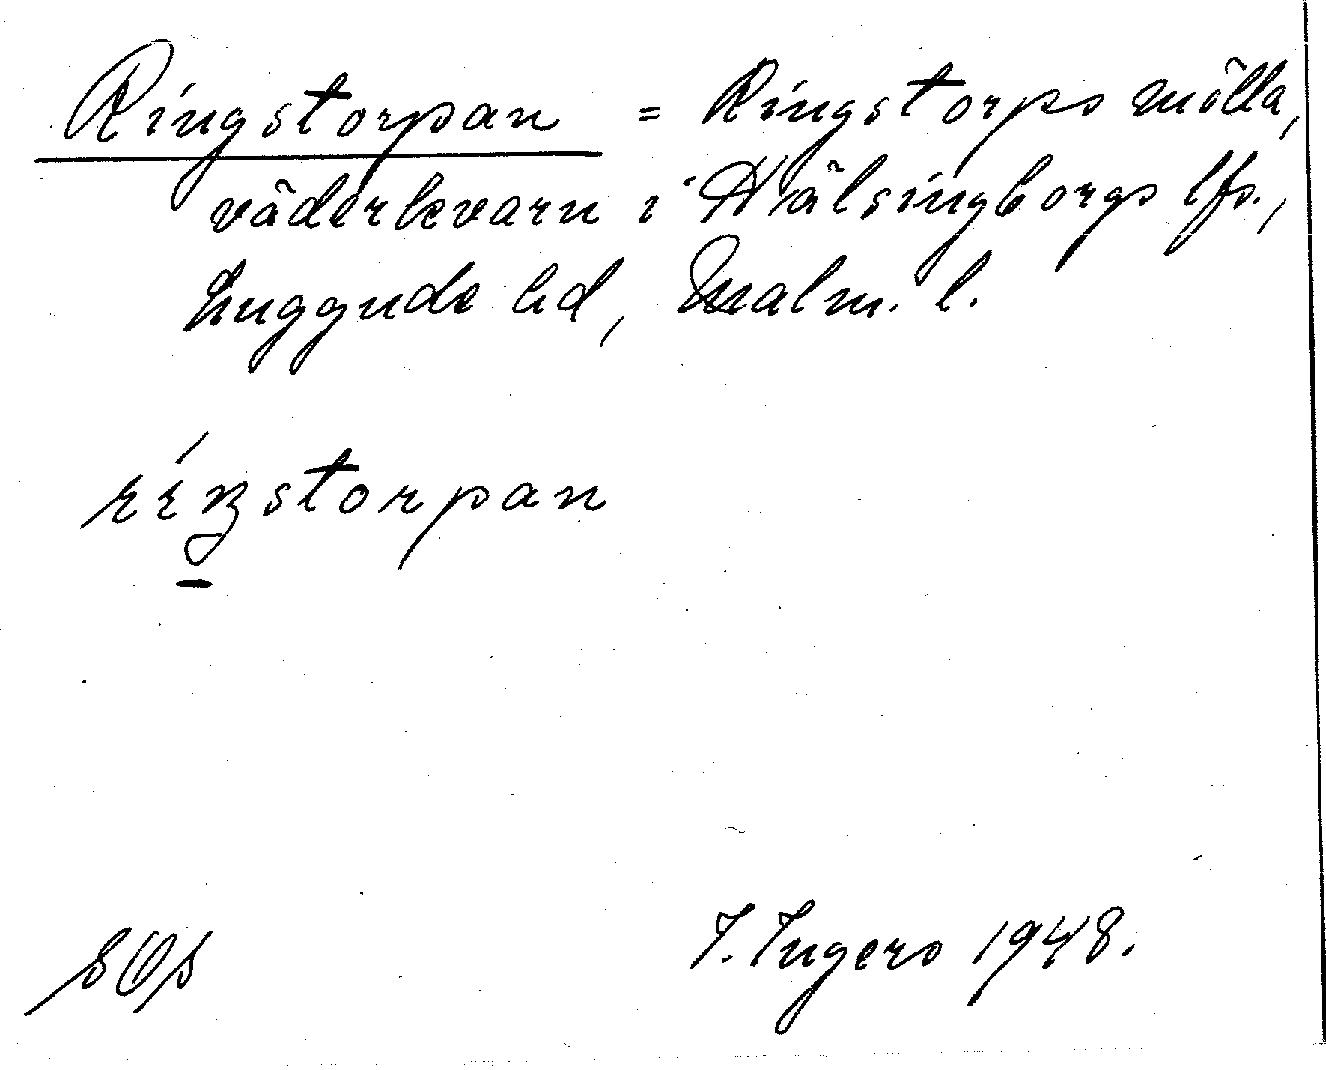 Ringstorpan = Ringstorps mölla,
väderkvarn i Hälsingborgs lfs.,
Luggude hd, Malm. l.
réŋstorpan
SOs I. Ingers 1948.